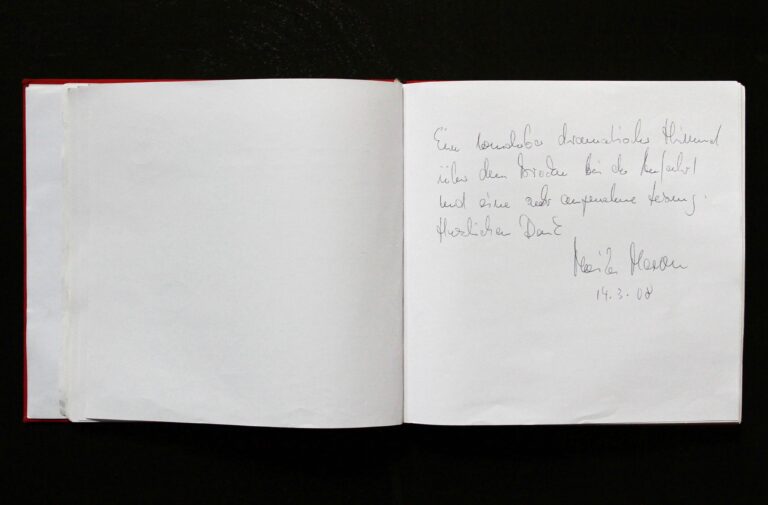 Ein wunderbar dramatischer Himmel
über dem Boden bei der Anfahrt
und eine sehr angenehme Lesung.
Herzlichen Dank
Monika Maron
14.3.08